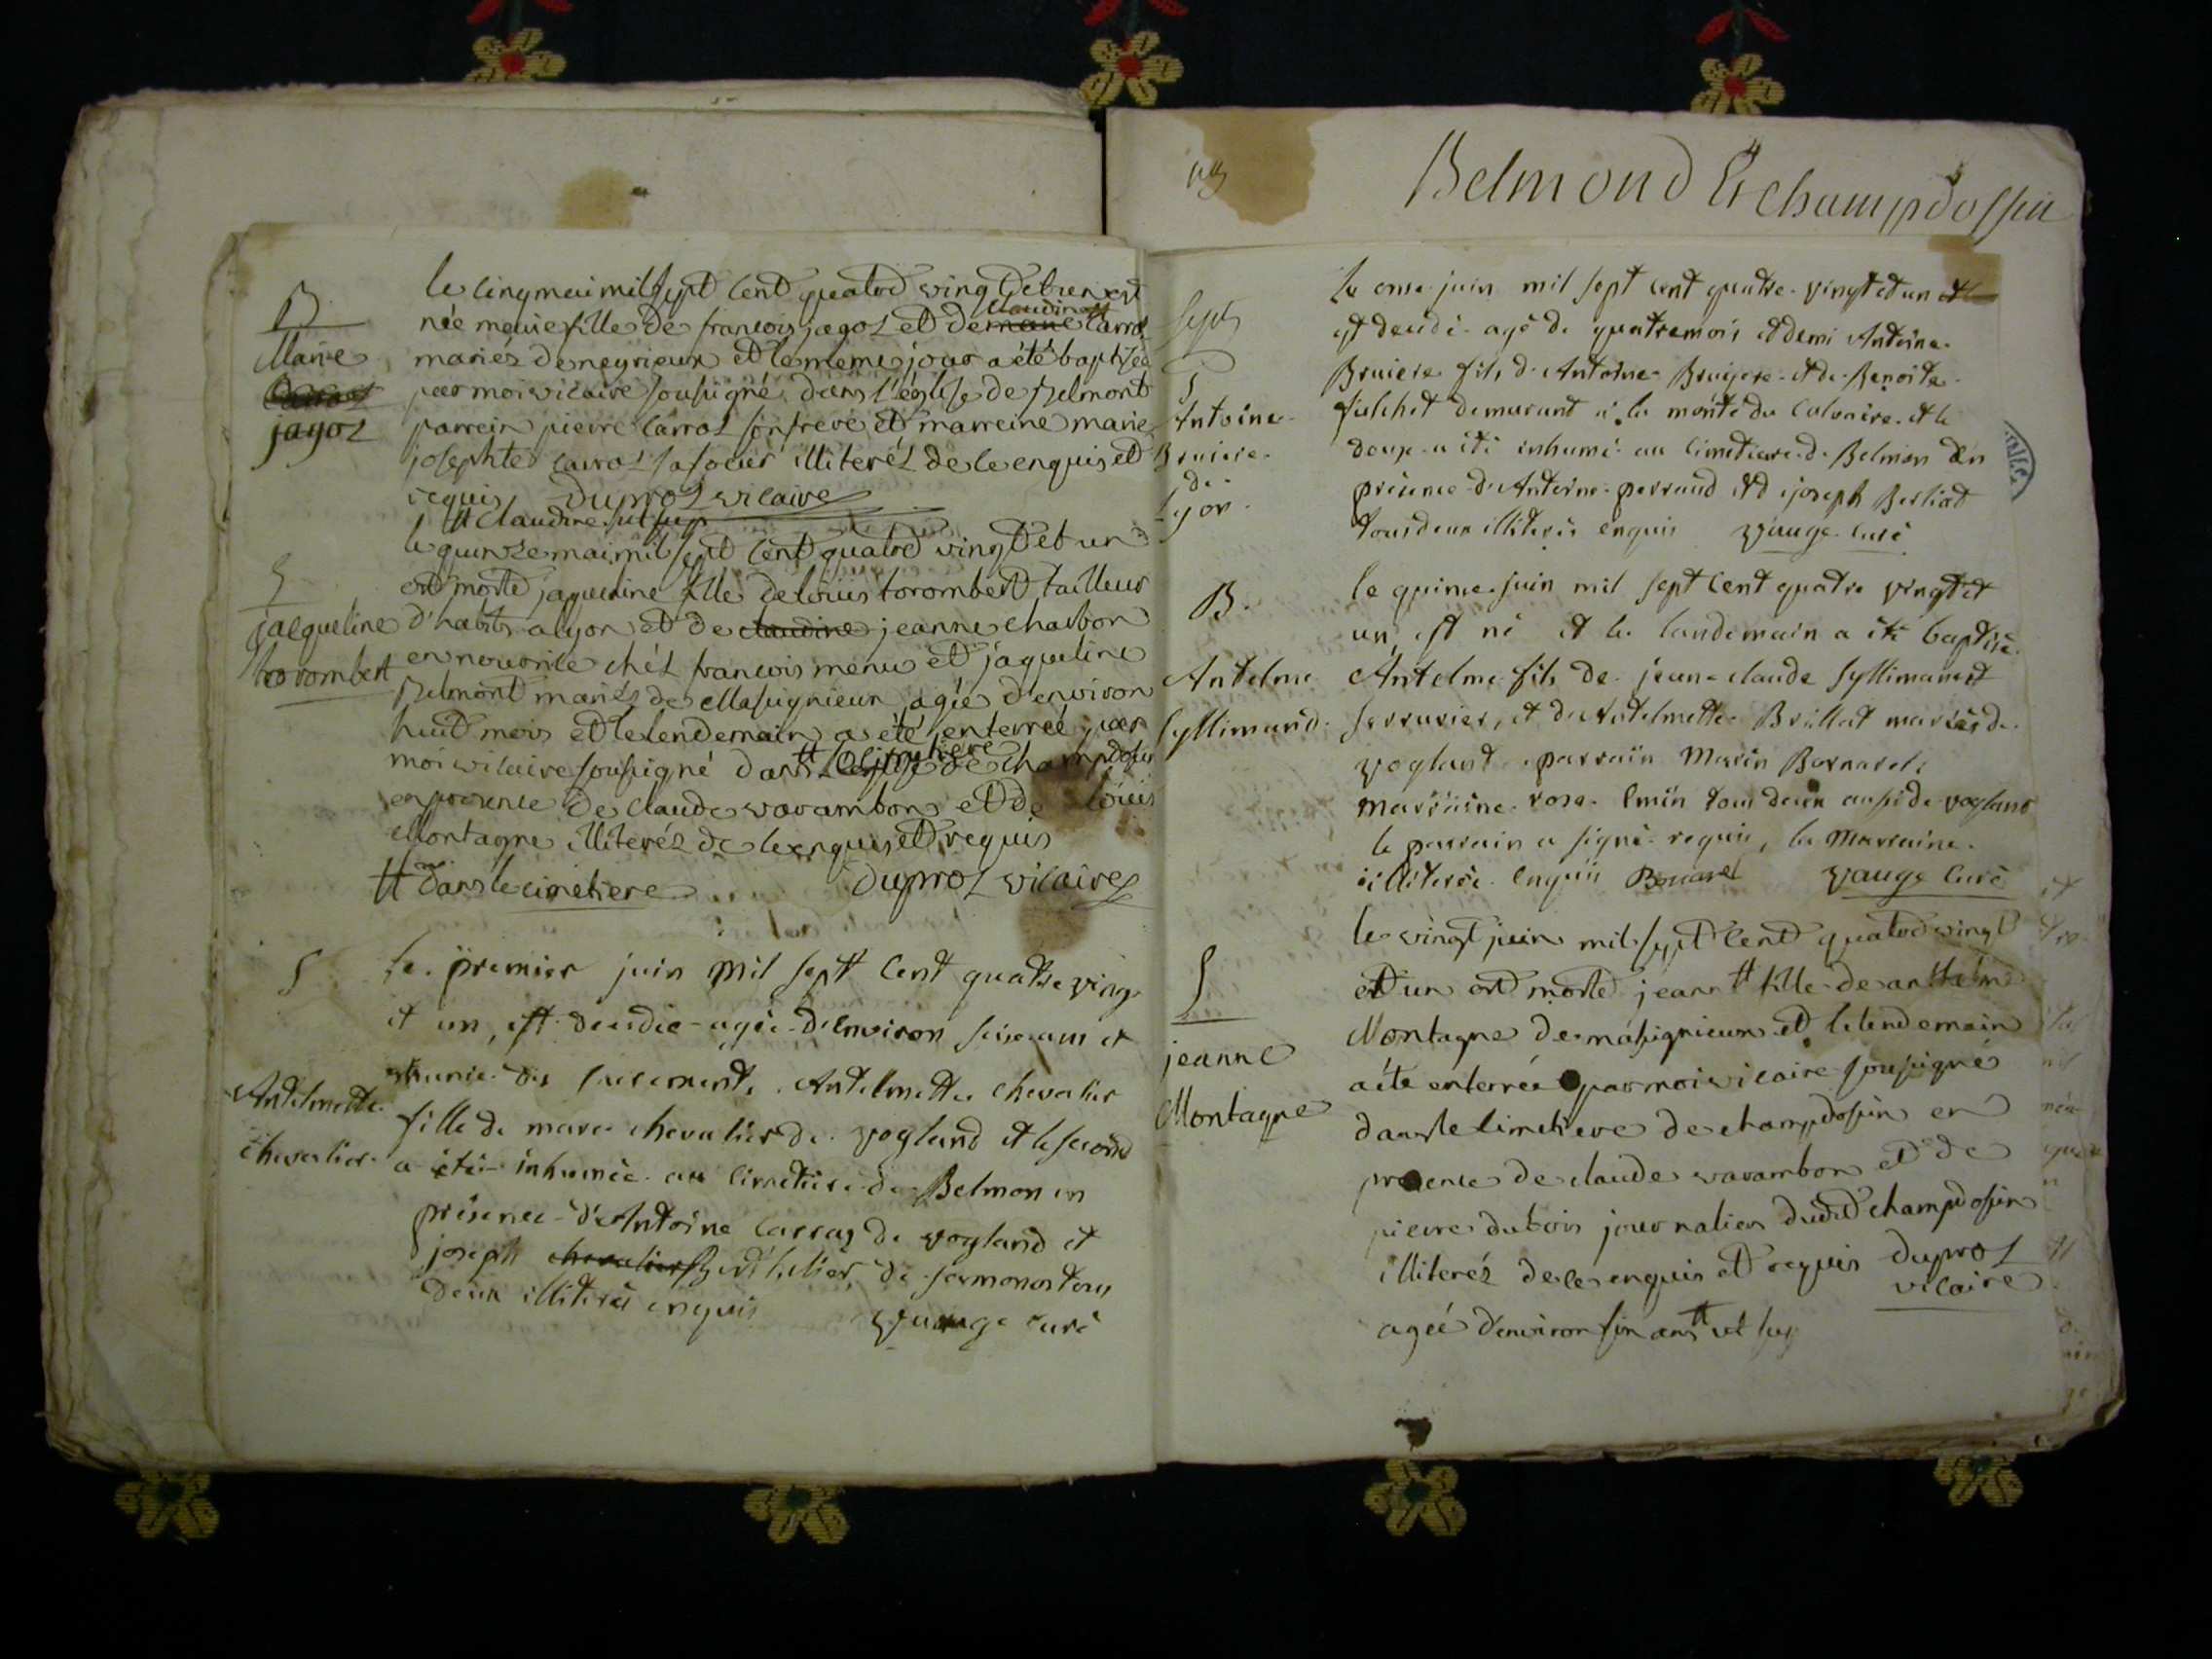 B
Marie
jagoz
le cinq mai mil sept cent quatre ving et un est
née marie fille de francois jagoz et de marie claudine # Carroz
mariés de neyrieux et le meme jour a été baptisée
par moi vicaire sousigné dans l'église de Belmont
parrein pierre Carroz son frere et marreine marie
josephte Carroz sa soeur illiteréz de le enquis et
requis Duproz vicaire
# Claudine ut sup
S
jacqueline
torombert
le quinze mai mil sept cent quatre vingt et un
est morte jaqueline fille de louis torombert tailleur
d'habits a lyon et de claudine jeanne charbon
en nourrice chéz francois menu et jaqueline
Belmont mariéz de Massignieux agée d'environ
huit mois et le lendemain a été enterreé par
moi vicaire sousigné dans # le cimetiere de champdosin
en presence de claude varambon et de louis
Montagne illiteréz de le enquis et requis
# dans le cimetiere Duproz vicaire
S
Antelmette
chevalier
le premier juin mil sept cent quatre ving
et un, est decedée agée d'environ seise ans et
munie des sacrements Antelmette chevalier
fille de marc chevalier de vogland et le second
a été inhumée au cimetiere de Belmon en
présence d'Antoine Carraz de vogland et
joseph chevalier de sermonos tous
deux illiterés enquis Vauge curé
Belmond Et champdossin
Sept
S
Antoine
Bruiere
de
Lyon
Le onse juin mil sept cent quatre vingt et un et
est decedé agé de quatre mois et demi Antoine
Bruiere fils d'Antoine Bruyere et de Benoite
fulchet demeurant à la monté du Calvaire et le
douse a été inhumé au cimetiere de Belmon en
présence d'Antoine perraud et de joseph Berliat
tous deux illiterés enquis Vauge curé
B.
Antelme
Syllimand
le quinse juin mil sept cent quatre vingt et
un est né et le landemain a été baptisé
Antelme fils de jean claude Syllimand
serrurier, et d'Antelmette Brillat mariés de
vogland parrain Marin Bornarel
marraine rose Emin tous deux aussi de vogland
le parrain a signé requis, la marraine
illiterée enquis Bonarel Vauge Curé
S
jeanne
Montagne
le vingt juin mil sept cent quatre vingt
et un est morte jeann # fille de anthelme
Montagne de massignieux et le lendemain
a été enterrée par moi vicaire sousigné
dans le cimetiere de champdosin en
presence de claude varambon et de
pierre dubois journalier dudit champdosin
illiteréz de le enquis et requis Duproz
vicaire
agée d'environ six ans # ut sup